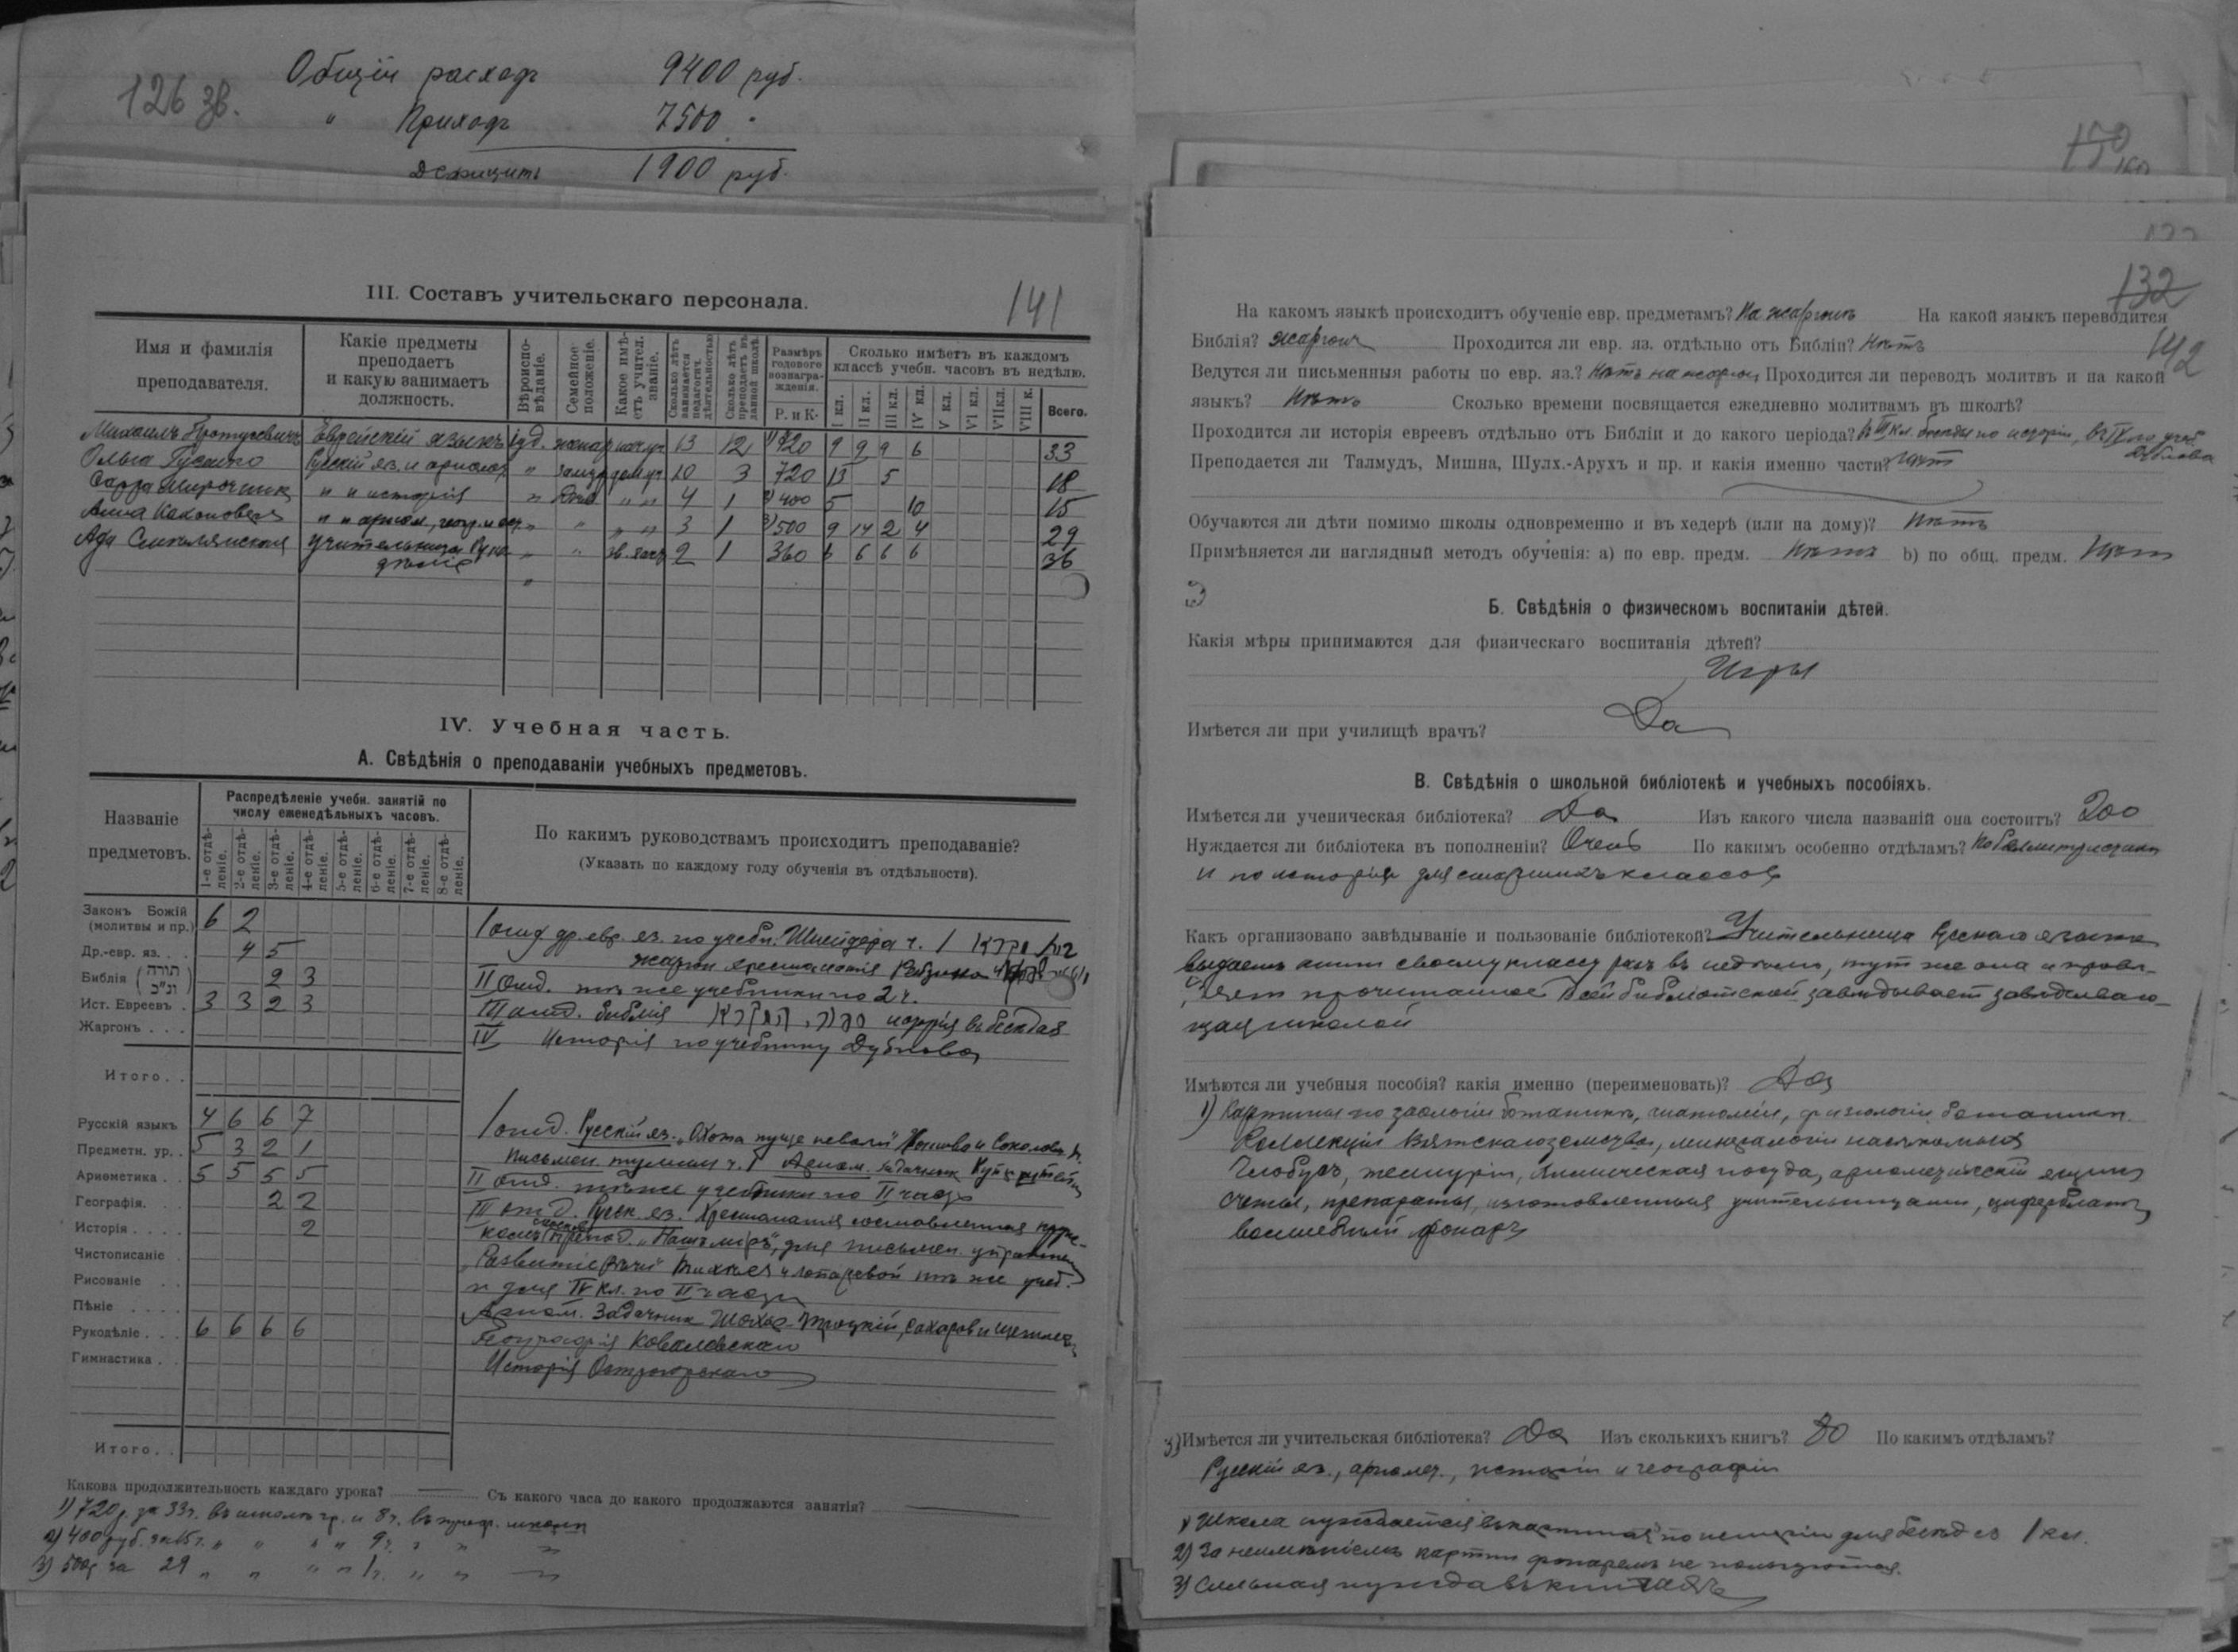 126 зв.
Общій расходъ 9400 руб.
" Приходъ 7500 "
Дефицитъ 1900 руб.
III. Составъ учительскаго персонала.
141
Имя и фамилія преподавателя.
Какіе предметы преподаетъ и какую занимаетъ должность.
Вѣроиспо-вѣданіе.
Семейное положеніе.
Какое имѣ-етъ учител. званіе.
Сколько лѣтъ занимается педагогич. дѣятельностью
Сколько лѣтъ преподаетъ въ данной школѣ.
Размѣръ годового вознагра-жденія.
Р. и К.
Сколько имѣетъ въ каждомъ классѣ учебн. часовъ въ недѣлю.
I кл. II кл. III кл. IV кл. V кл. VI кл. VII кл. VIII к. Всего.
Михаилъ Еврейскій языкъ іуд. женат 13 12 1) 720 9 9 9 6 33
Ольга Русскій яз. и ариөмет " замуж дом уч 10 3 720 13 5 18
Сарра Мирочник " и исторія " " " 4 1 2) 400 5 10 15
Анна " и ариөм., геогр. " " " " 3 1 3) 500 9 14 2 4 29
Ада Смолянская учительница рукодѣлія " " 2 1 360 6 6 6 6 36
"
IV. Учебная часть.
А. Свѣдѣнія о преподаваніи учебныхъ предметовъ.
Названіе предметовъ.
Распредѣленіе учебн. занятій по числу еженедѣльныхъ часовъ.
1-е отдѣ-леніе. 2-е отдѣ-леніе. 3-е отдѣ-леніе. 4-е отдѣ-леніе. 5-е отдѣ-леніе. 6-е отдѣ-леніе. 7-е отдѣ-леніе. 8-е отдѣ-леніе.
По какимъ руководствамъ происходитъ преподаваніе?
(Указать по каждому году обученія въ отдѣльности).
Законъ Божій (молитвы и пр.) 6 2
Др.-евр. яз. . . 4 5
Библія (תורה ונ"כ) 2 3
Ист. Евреевъ . 3 3 2 3
Жаргонъ . . .
Итого . .
I отд др. евр. яз. по учебн. Шнейдера ч. I
жаргон хрестоматія
II Отд. тѣ же учебники по 2 ч.
III отд. Библія исторія въ бесѣдах
IV Исторія по учебнику Дубнова
Русскій языкъ 4 6 6 7
Предметн. ур. . 5 3 2 1
Ариөметика . . 5 5 5 5
Географія. . . 2 2
Исторія . . . . 2
Чистописаніе .
Рисованіе . .
Пѣніе . . . .
Рукодѣліе . . . 6 6 6 6
Гимнастика . .
Итого . .
I отд. Русскій яз. „Охота пуще неволи"
II отд. тѣ же учебники по II часть
III отд. Русск. яз. Хрестоматія составленная
„Нашъ міръ", для письмен. упражнен
„Развитіе рѣчи" тѣ же учеб.
и для IV кл. по II части
Ариөм. Задачник Шохор-Троцкій, Сахаров и
Географія Ковалевскаго
Исторія Острогорскаго
Какова продолжительность каждаго урока? — Съ какого часа до какого продолжаются занятія? —
1) 720 р. за 33 ч. въ школѣ гр. и 8 ч. въ проф. школѣ
2) 400 руб. за 15 ч. " " " " 9 ч. " " "
3) 500 р за 29 " " " " 1 ч. " " "
150
160
132
142
На какомъ языкѣ происходитъ обученіе евр. предметамъ? На жаргонѣ На какой языкъ переводится
Библія? жаргон Проходится ли евр. яз. отдѣльно отъ Библіи? Нѣтъ
Ведутся ли письменныя работы по евр. яз.? Нѣтъ на жаргон. Проходится ли переводъ молитвъ и на какой
языкъ? Нѣтъ Сколько времени посвящается ежедневно молитвамъ въ школѣ?
Проходится ли исторія евреевъ отдѣльно отъ Библіи и до какого періода? в III кл. бесѣды по исторіи, въ IV по учеб. Дубнова
Преподается ли Талмудъ, Мишна, Шулх.-Арухъ и пр. и какія именно части? Нѣт
Обучаются ли дѣти помимо школы одновременно и въ хедерѣ (или на дому)? Нѣтъ
Примѣняется ли наглядный методъ обученія: а) по евр. предм. Нѣтъ b) по общ. предм. Нѣт
Б. Свѣдѣнія о физическомъ воспитаніи дѣтей.
Какія мѣры принимаются для физическаго воспитанія дѣтей?
Игры
Имѣется ли при училищѣ врачъ? Да
В. Свѣдѣнія о школьной библіотекѣ и учебныхъ пособіяхъ.
Имѣется ли ученическая библіотека? Да Изъ какого числа названій она состоитъ? 200
Нуждается ли библіотека въ пополненіи? Очень По какимъ особенно отдѣламъ? По беллитристикѣ
и по исторіи для старшихъ классовъ
Какъ организовано завѣдываніе и пользованіе библіотекой? Учительница русскаго языка
выдаетъ книги своему классу разъ въ недѣлю, тут же она и провѣ-
ряет прочитанное Всей библіотекой завѣдывает завѣдываю-
щая школой
Имѣются ли учебныя пособія? какія именно (переименовать)? Да
1) Картины по зоологіи ботаникѣ, анатоміи, физіологіи ботаники
Коллекціи Вятскаго земства, минералогіи насѣкомыя
Глобусъ, теллурій, химическая посуда, ариөметическій ящикъ
счеты, препараты, изготовленныя учительницами, циферблатъ
волшебный фонарь
3) Имѣется ли учительская библіотека? Да Изъ сколькихъ книгъ? 80 По какимъ отдѣламъ?
Русскій яз., ариөмет., исторіи и географіи
1) Школа нуждается въ картинахъ по исторіи для бесѣд съ I кл.
2) За неимѣніемъ картин фонаремъ не пользуются.
3) Сильная нужда въ книгахъ